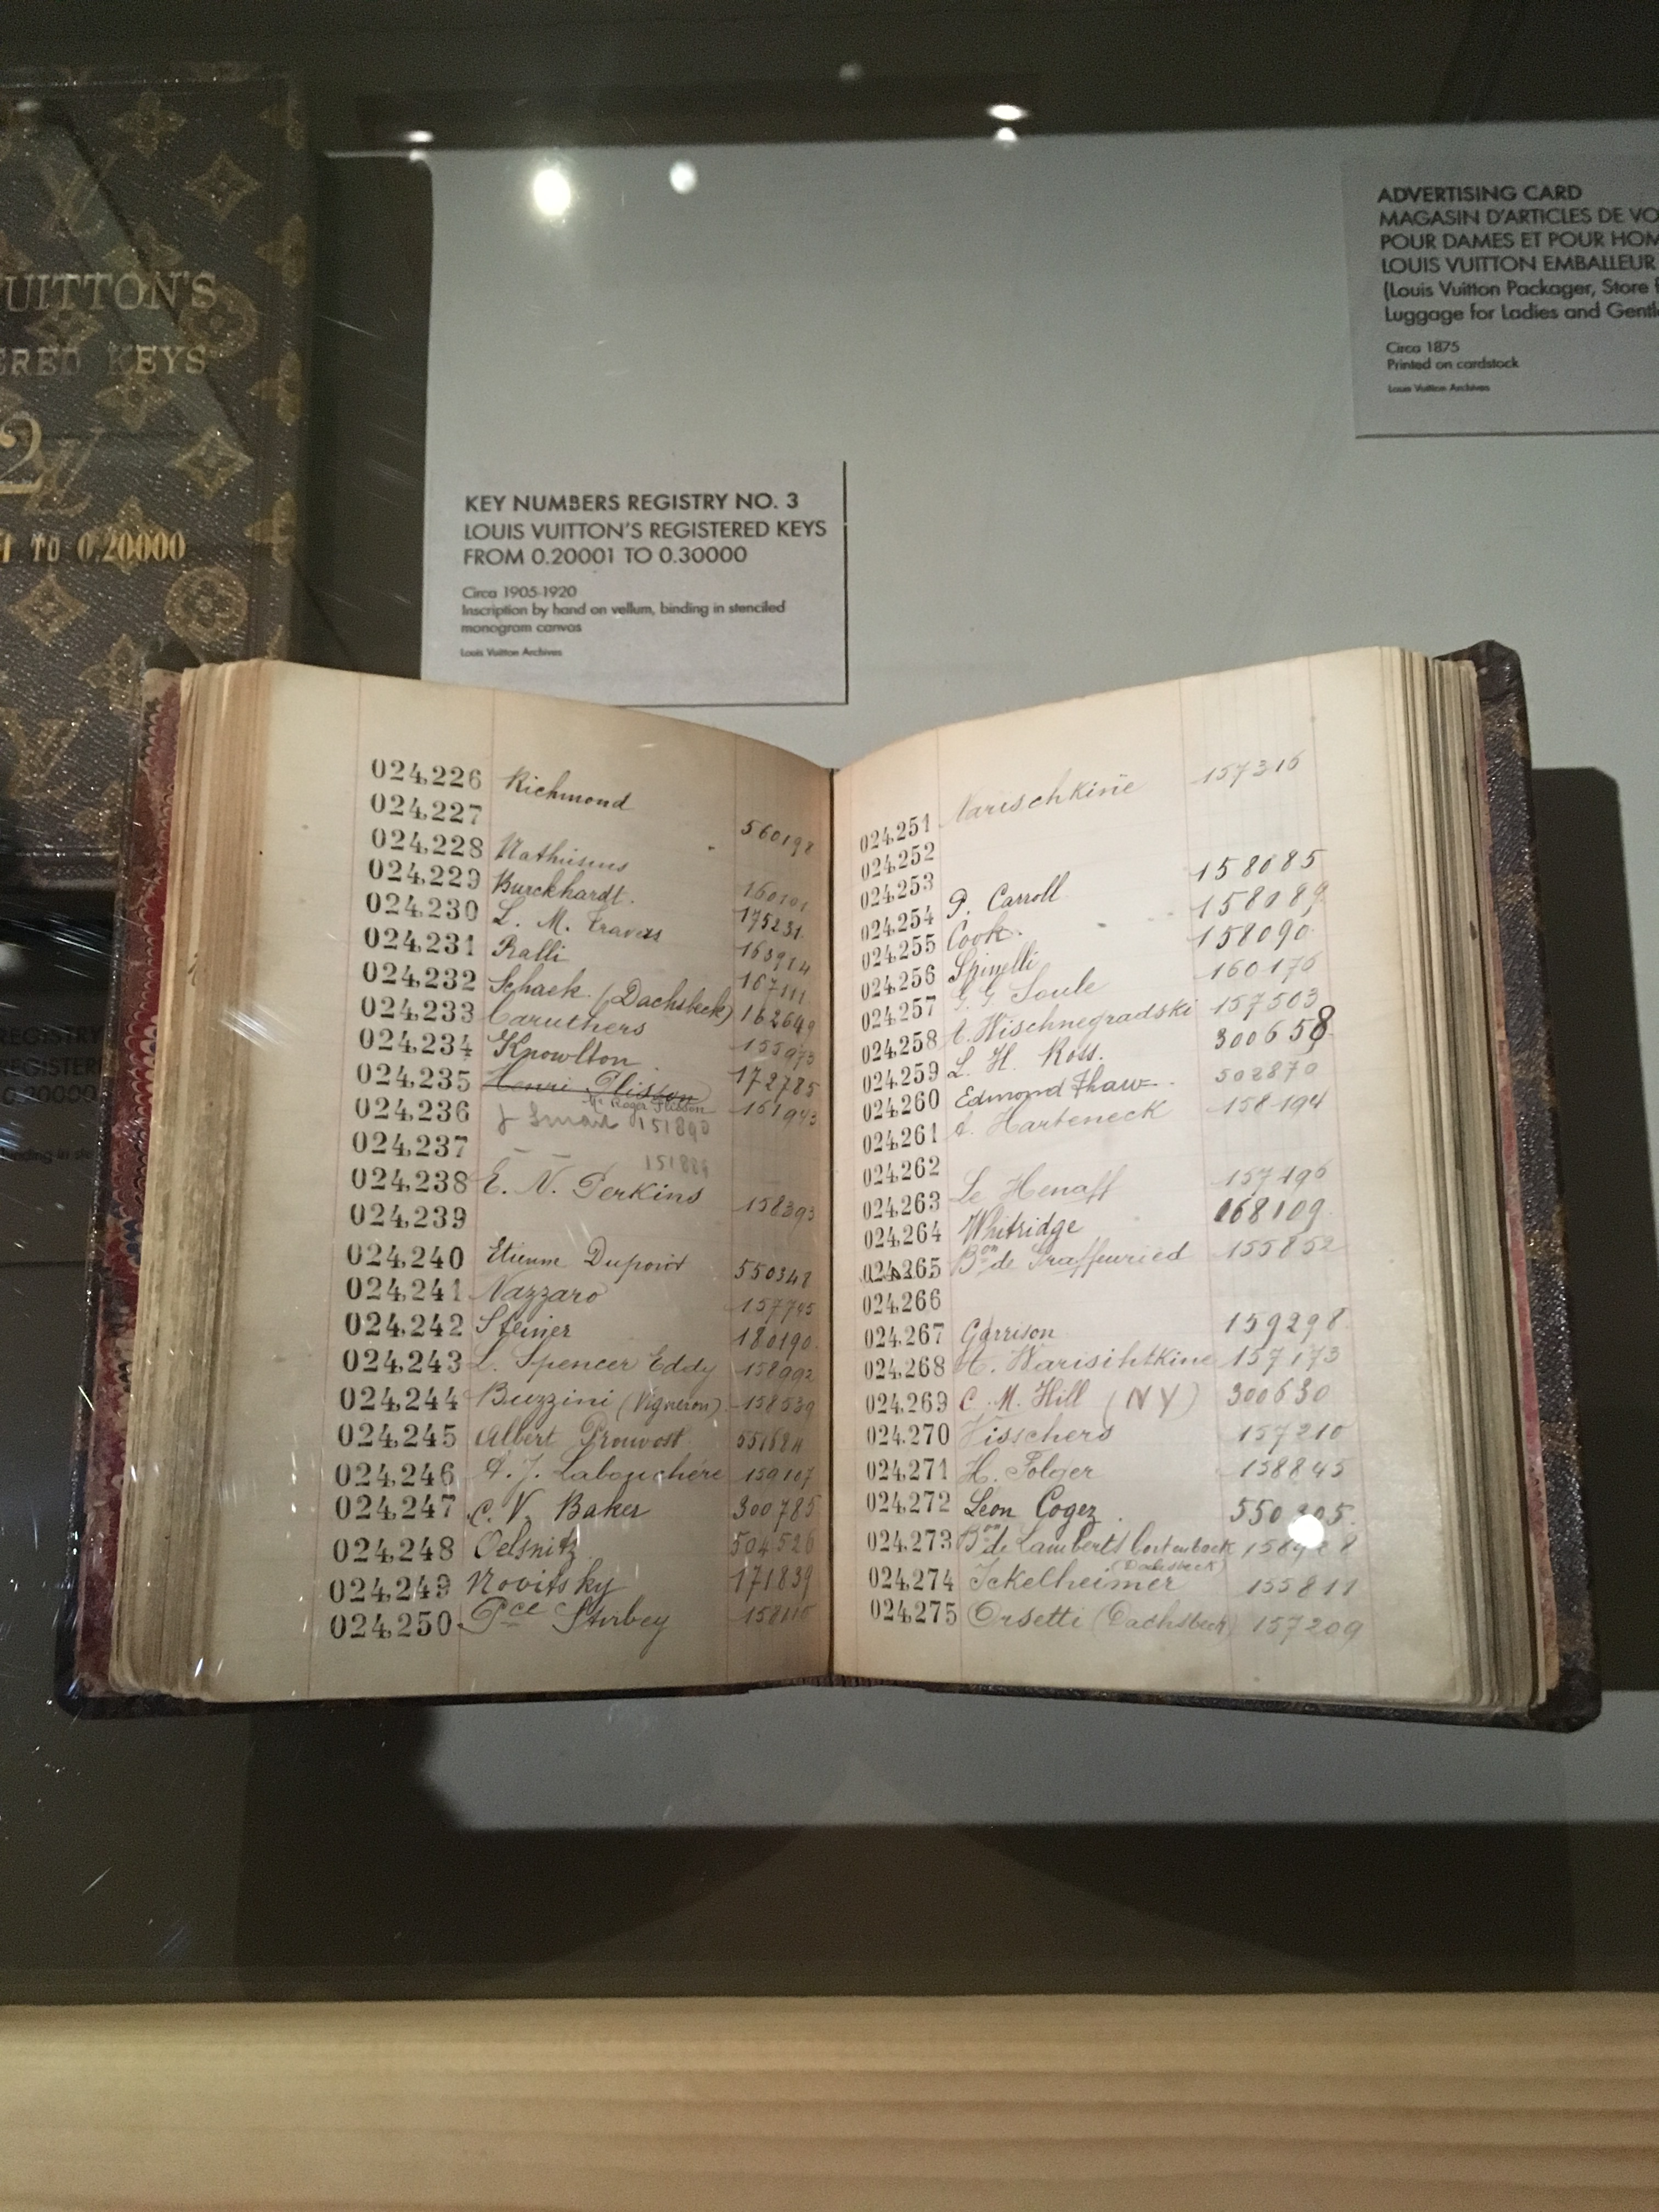 UITTON'S
ERED KEYS
2
1 TO 0.20000
KEY NUMBERS REGISTRY NO. 3
LOUIS VUITTON'S REGISTERED KEYS
FROM 0.20001 TO 0.30000
Circa 1905-1920
Inscription by hand on vellum, binding in stenciled
monogram canvas
Louis Vuitton Archives
ADVERTISING CARD
MAGASIN D'ARTICLES DE VO
POUR DAMES ET POUR HOM
LOUIS VUITTON EMBALLEUR
(Louis Vuitton Packager, Store f
Luggage for Ladies and Gentl
Circa 1875
Printed on cardstock
Louis Vuitton Archives
REGISTRY
REGISTER
0.20000
024,226 Richmond 560198
024,227
024,228 Mathusius
024,229 Burckhardt. 175231
024,230 L. M. Travers
024,231 Ralli 167111
024,232 Schaek. (Dachsbeck) 162649
024,233 Caruthers 155973
024,234 Knowlton 172785
024,235 Henri Plisson
Mr Roger Plisson 151943
024,236 J Smart 151890
024,237 151889
024,238 E. N. Perkins 158393
024,239
024,240 Etienne Dupont 550348
024,241 Nazzaro 157745
024,242 Steiner 180190
024,243 L. Spencer Eddy 158992
024,244 Buzzini (Vigneron) 158539
024,245 Albert Prouvost
024,246 A. J. Labouchére 159107
024,247 C. V. Baker 300785
024,248 Oelsnitz 504526
024,249 Novitsky 171839
024,250 Pce Stirbey
024,251 Narischkine 157316
024,252
024,253 158085
024,254 P. Carroll 158089
024,255 Cook. 158090
024,256 Spinelli 160176
024,257 G. G. Soule 157503
024,258 A. Wischnegradski 300658
024,259 L. H. Ross. 502870
024,260 Edmond Thaw 158194
024,261 A. Harteneck
024,262
024,263 Le Henaff 157196
024,264 Whitridge 168109
024,265 Bon de 155852
024,266
024,267 Garrison 159298
024,268 Warischkine 157173
024,269 C. M. Hill (NY) 300630
024,270 Visschers 157210
024,271 H. Folger 158845
024,272 Léon Cogez 550
024,273 Bon de Lamberts
(Dachsbeck)
024,274 Ickelheimer 155811
024,275 Orsetti (Dachsbeck) 157209